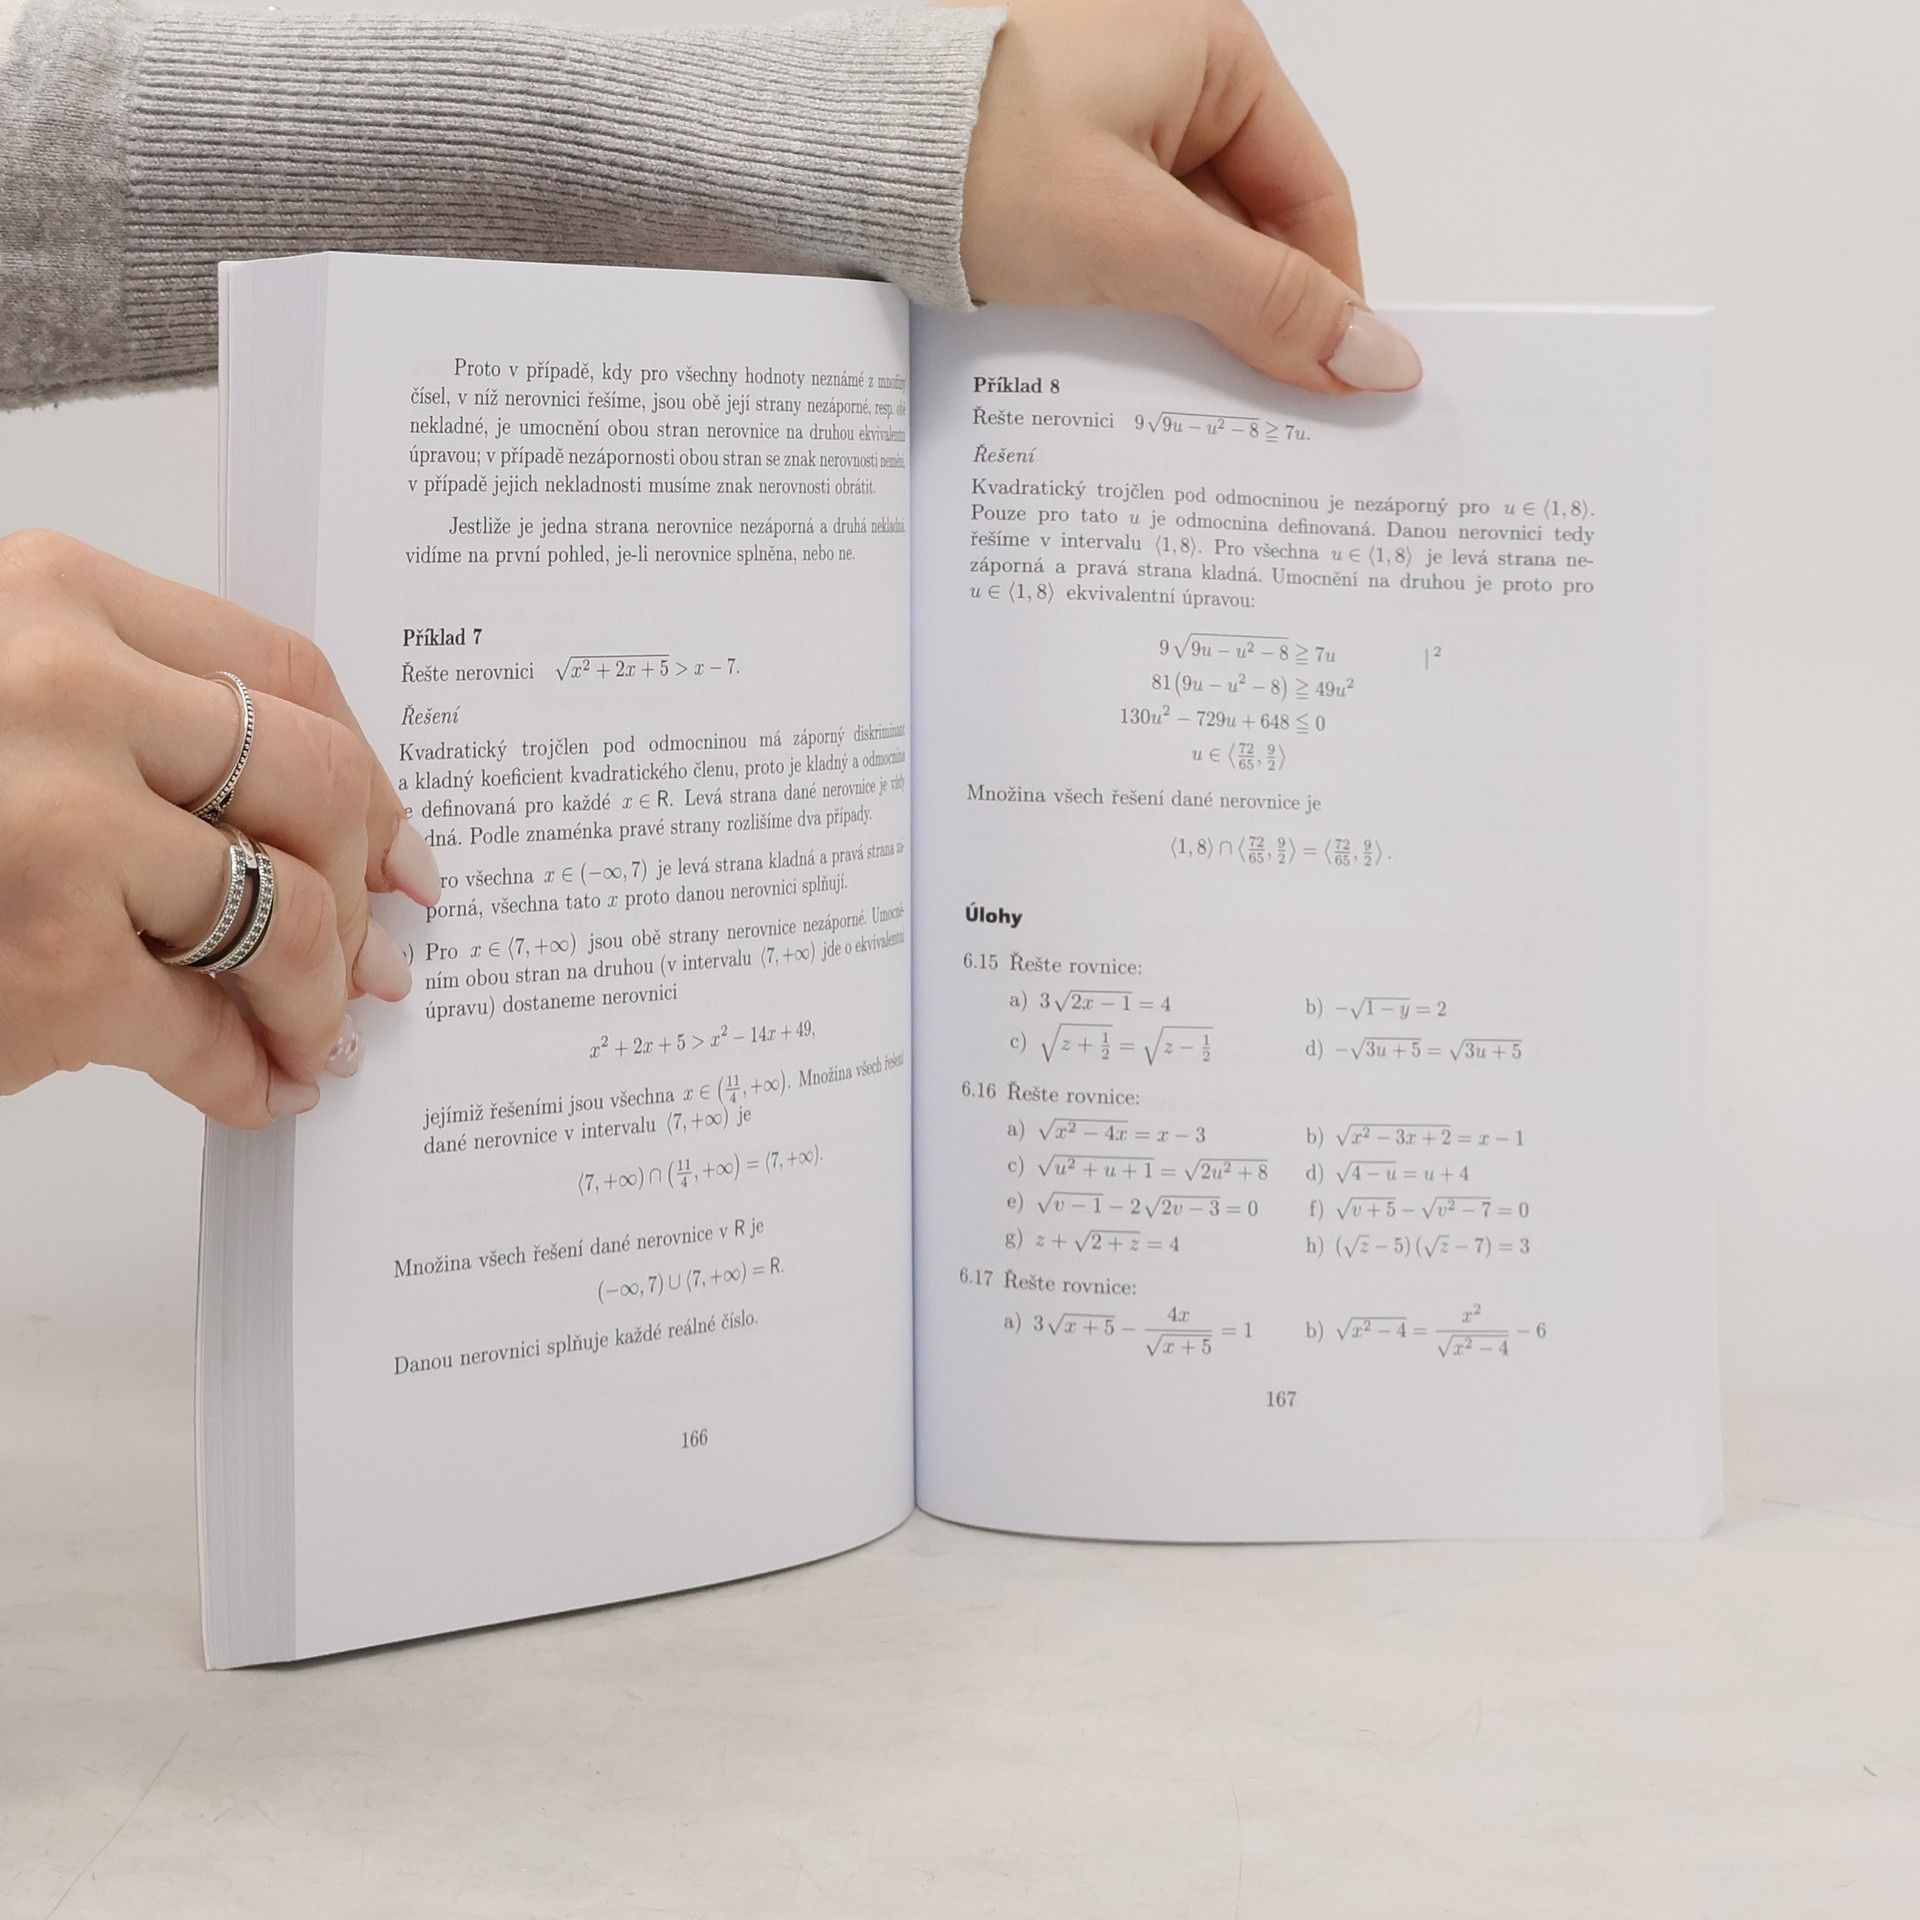 Proto v případě, kdy pro všechny hodnoty neznámé z množiny
čísel, v níž nerovnici řešíme, jsou obě její strany nezáporné, resp. obě
nekladné, je umocnění obou stran nerovnice na druhou ekvivalentní
úpravou; v případě nezápornosti obou stran se znak nerovnosti nemění,
v případě jejich nekladnosti musíme znak nerovnosti obrátit.
Jestliže je jedna strana nerovnice nezáporná a druhá nekladná,
vidíme na první pohled, je-li nerovnice splněna, nebo ne.
Příklad 7
Řešte nerovnici √(x² + 2x + 5) > x − 7.
Řešení
Kvadratický trojčlen pod odmocninou má záporný diskriminant
a kladný koeficient kvadratického členu, proto je kladný a odmocnina
e definovaná pro každé x ∈ R. Levá strana dané nerovnice je vždy
dná. Podle znaménka pravé strany rozlišíme dva případy.
ro všechna x ∈ (−∞, 7) je levá strana kladná a pravá strana zá-
porná, všechna tato x proto danou nerovnici splňují.
) Pro x ∈ ⟨7, +∞) jsou obě strany nerovnice nezáporné. Umocně-
ním obou stran na druhou (v intervalu ⟨7, +∞) jde o ekvivalentní
úpravu) dostaneme nerovnici
x² + 2x + 5 > x² − 14x + 49,
jejímiž řešeními jsou všechna x ∈ (11/4, +∞). Množina všech řešení
dané nerovnice v intervalu ⟨7, +∞) je
⟨7, +∞) ∩ (11/4, +∞) = ⟨7, +∞).
Množina všech řešení dané nerovnice v R je
(−∞, 7) ∪ ⟨7, +∞) = R.
Danou nerovnici splňuje každé reálné číslo.
166
Příklad 8
Řešte nerovnici 9√(9u − u² − 8) ≧ 7u.
Řešení
Kvadratický trojčlen pod odmocninou je nezáporný pro u ∈ ⟨1, 8⟩.
Pouze pro tato u je odmocnina definovaná. Danou nerovnici tedy
řešíme v intervalu ⟨1, 8⟩. Pro všechna u ∈ ⟨1, 8⟩ je levá strana ne-
záporná a pravá strana kladná. Umocnění na druhou je proto pro
u ∈ ⟨1, 8⟩ ekvivalentní úpravou:
9√(9u − u² − 8) ≧ 7u |²
81(9u − u² − 8) ≧ 49u²
130u² − 729u + 648 ≦ 0
u ∈ ⟨72/65, 9/2⟩
Množina všech řešení dané nerovnice je
⟨1, 8⟩ ∩ ⟨72/65, 9/2⟩ = ⟨72/65, 9/2⟩.
Úlohy
6.15 Řešte rovnice:
a) 3√(2x − 1) = 4 b) −√(1 − y) = 2
c) √(z + 1/2) = √(z − 1/2) d) −√(3u + 5) = √(3u + 5)
6.16 Řešte rovnice:
a) √(x² − 4x) = x − 3 b) √(x² − 3x + 2) = x − 1
c) √(u² + u + 1) = √(2u² + 8) d) √(4 − u) = u + 4
e) √(v − 1) − 2√(2v − 3) = 0 f) √(v + 5) − √(v² − 7) = 0
g) z + √(2 + z) = 4 h) (√z − 5)(√z − 7) = 3
6.17 Řešte rovnice:
a) 3√(x + 5) − 4x/√(x + 5) = 1 b) √(x² − 4) = x²/√(x² − 4) − 6
167